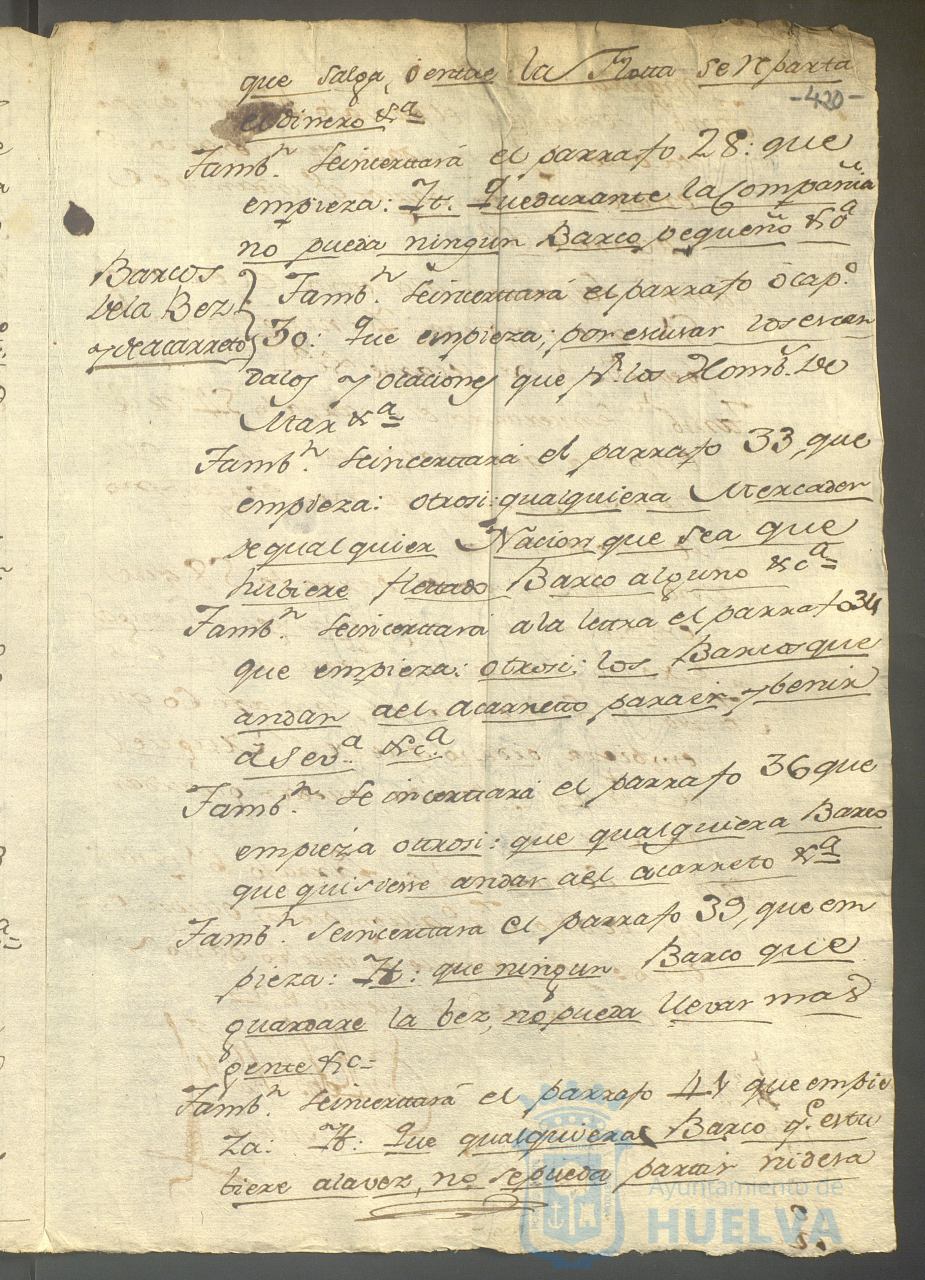 que salga, ò entre la Flota se reparta
-420-
el dinero &ª
Tambⁿ. seincertará el parrafo 28: que
empieza: It. Quedurante la Compañia
no pueda ningun Barco pequeño &ª
Barcos
dela Bez
y deacarreto
Tambⁿ. seincertará el parrafo ò cap.º
30: Que empieza; por escusar los escan
dalos y ocaciones que pª los Homb.ˢ de
Mar &ª
Tambⁿ. seincertará el parrafo 33, que
empieza: otrosi: qualquiera Mercader
de qualquier Nacion que sea que
hubiere fletado Barco alguno &cª
Tambⁿ. seincertará a la letra el parrafo 34
que empieza: otrosi: los Barcos que
andan ael acarreto para ir y benir
a Sevª &cª
Tambⁿ. se incertará el parrafo 36 que
empieza otrosi: que qualquiera Barco
que quisiere andar ael acarreto &ª
Tambⁿ. seincertara el parrafo 39, que em
pieza: It: que ningun Barco que
guardare la bez, no pueda llevar mas
gente &c
Tambⁿ. seincertará el parrafo 41 que empie
za: It: Que qualquiera Barco q.e estu
biere alavez, no sepueda partir nidexa
Ayuntamiento de
HUELVA